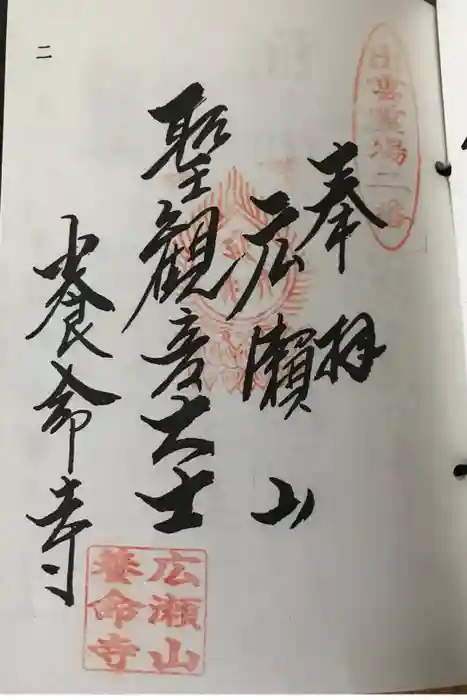 二
出雲霊場二番
奉拝
広瀬山
聖観音大士
養命寺
広瀬山
養命寺